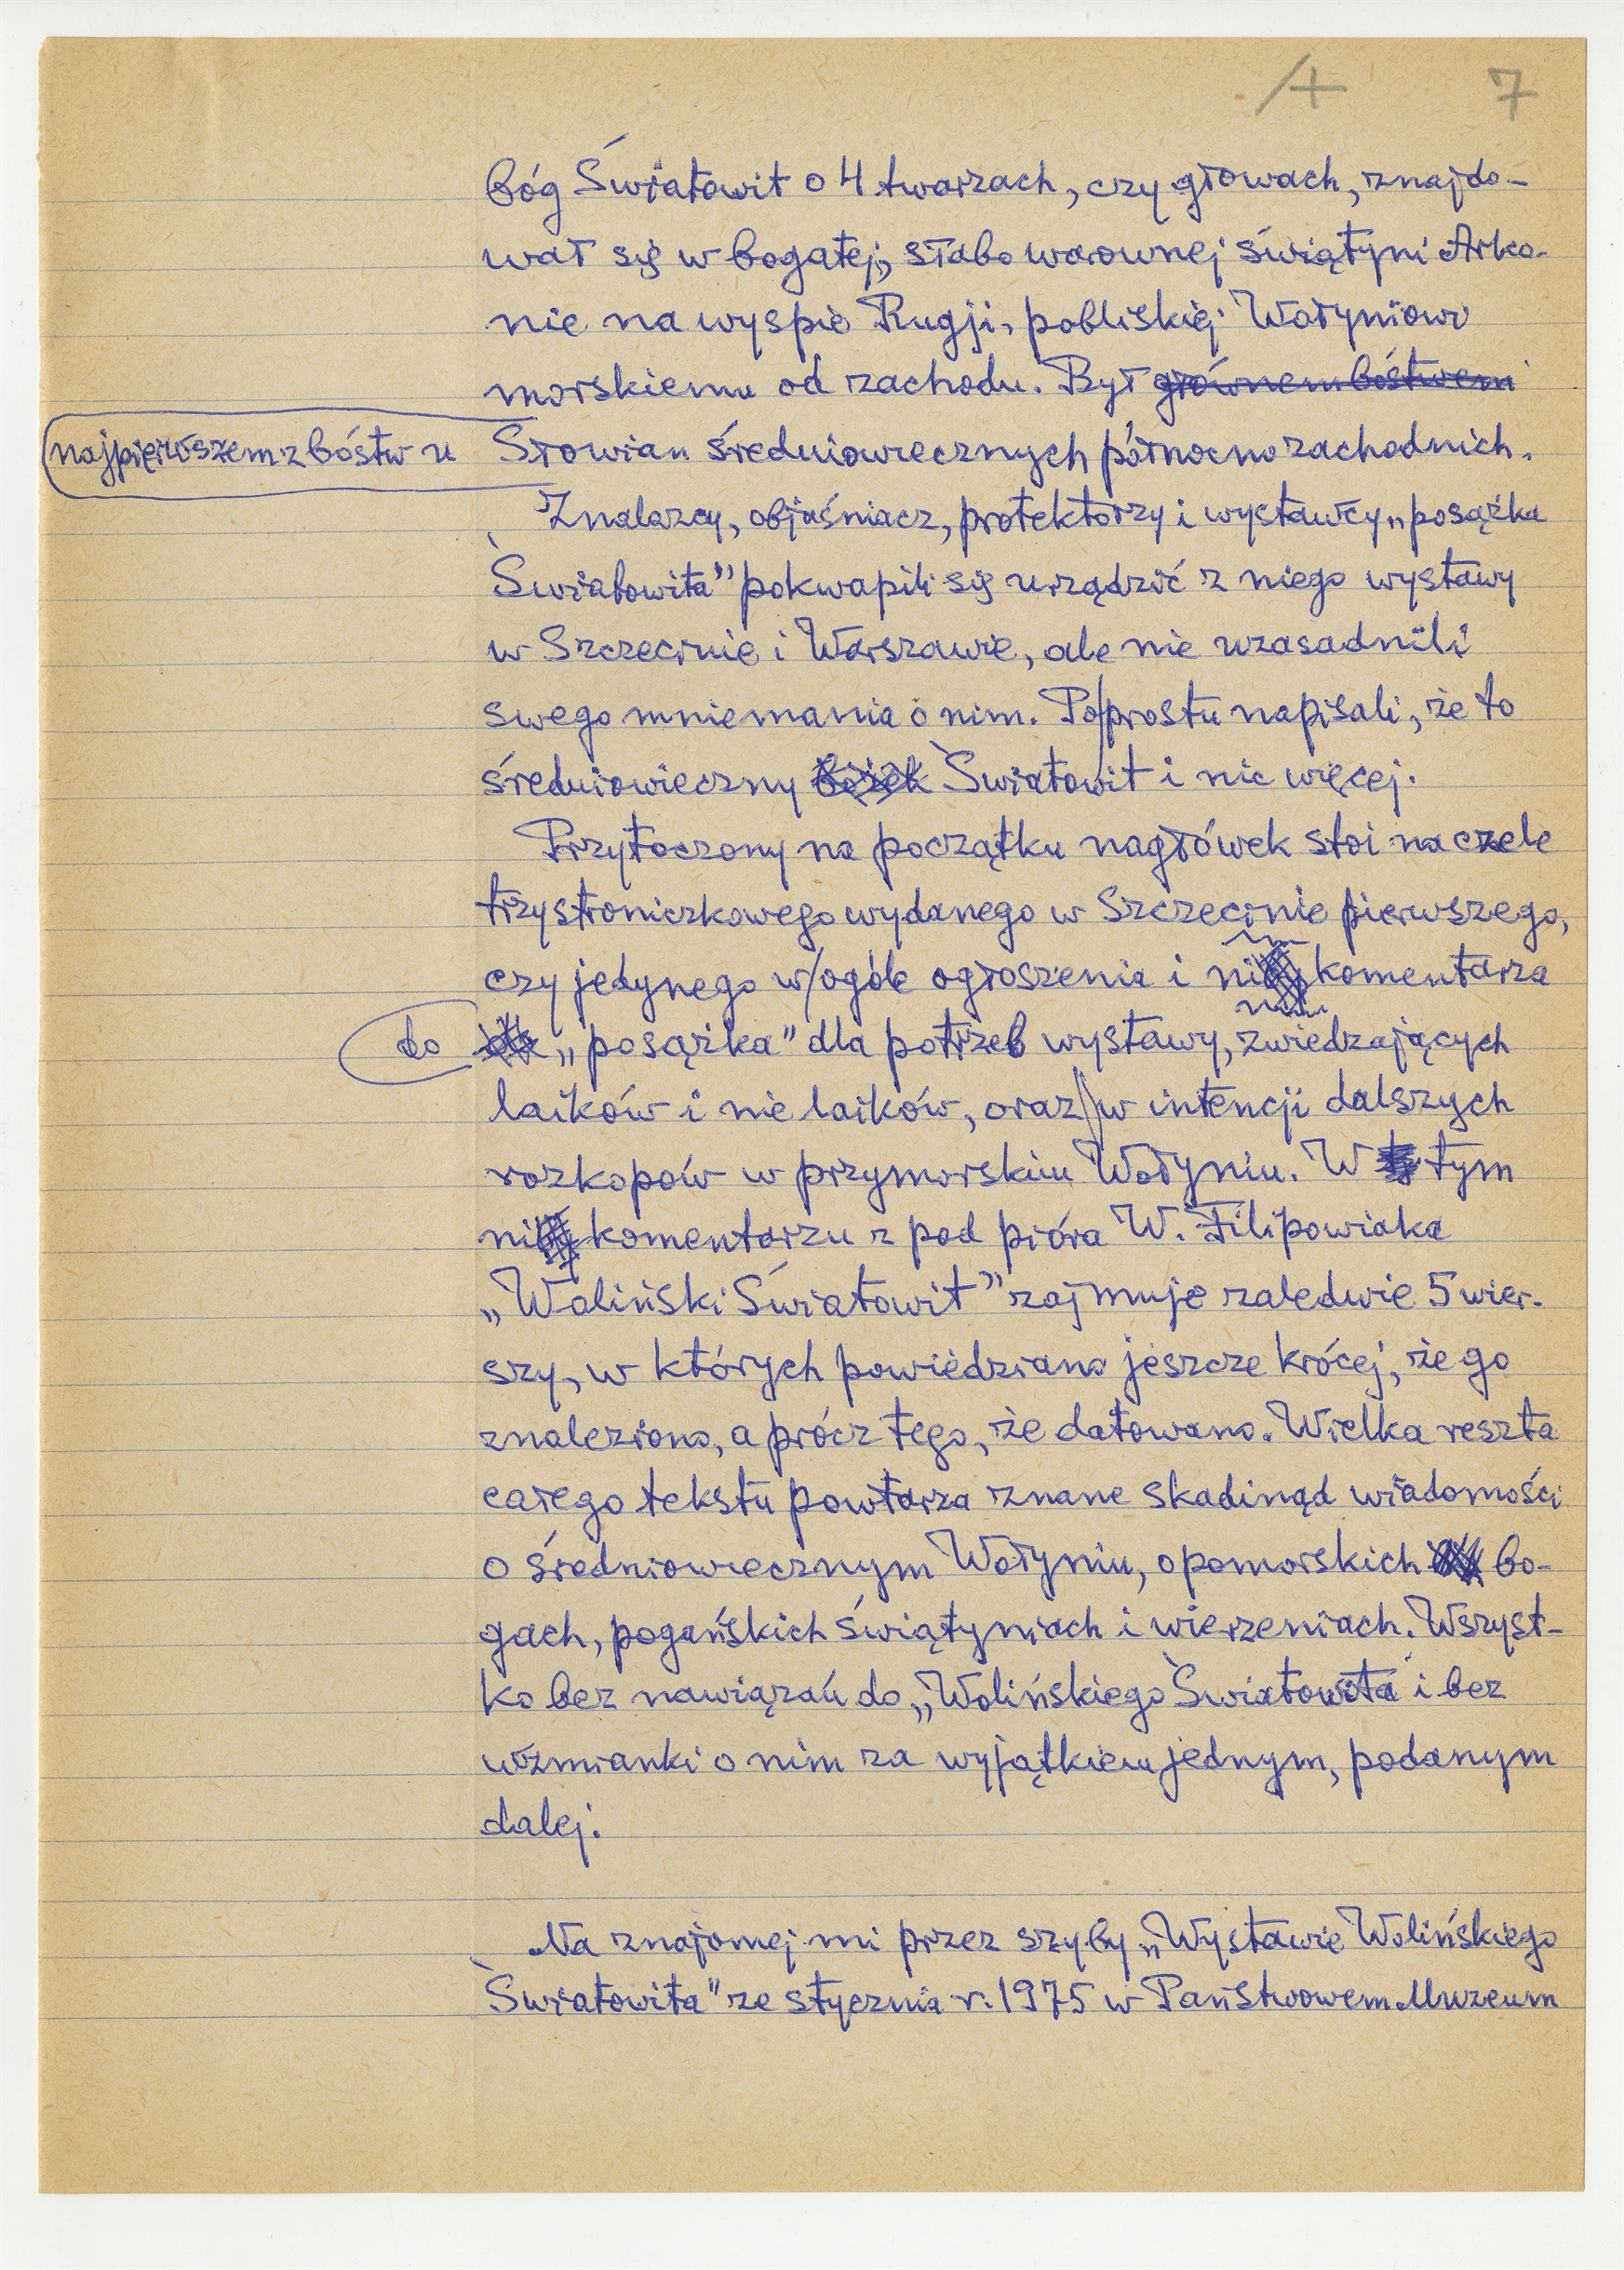 4 7
bóg Światowit o 4 twarzach, czy głowach, znajdo-
wał się w bogatej, słabo warownej świątyni Arko-
nie na wyspie Rugji, pobliskiej Wołyniowi
morskiemu od zachodu. Był głównem bóstwem
najpierwszem z bóstw u Słowian średniowiecznych północno zachodnich.
Znalazcy, objaśniacz, protektorzy i wystawcy „posążka
Światowita” pokwapili się urządzić z niego wystawy
w Szczecinie i Warszawie, ale nie uzasadnili
swego mniemania o nim. Po|prostu napisali, że to
średniowieczny bożek Światowit i nic więcej.
Przytoczony na początku nagłówek stoi na czele
trzystroniczkowego wydanego w Szczecinie pierwszego,
czy jedynego w/ogóle ogłoszenia i niby komentarza
do „posążka” dla potrzeb wystawy, zwiedzających
laików i nie laików, oraz w intencji dalszych
rozkopów w przymorskim Wołyniu. W tym
niby komentarzu z pod pióra W. Filipowiaka
„Woliński Światowit” zajmuje zaledwie 5 wier-
szy, w których powiedziano jeszcze krócej, że go
znaleziono, a prócz tego, że datowano. Wielka reszta
całego tekstu powtarza znane skadinąd wiadomości
o średniowiecznym Wołyniu, o pomorskich bo-
gach, pogańskich świątyniach i wierzeniach. Wszyst-
ko bez nawiązań do „Wolińskiego Światowita” i bez
wzmianki o nim za wyjątkiem jednym, podanym
dalej.
Na znajomej mi przez szyby „Wystawie Wolińskiego
Światowita” ze stycznia r. 1975 w Państwowem Muzeum